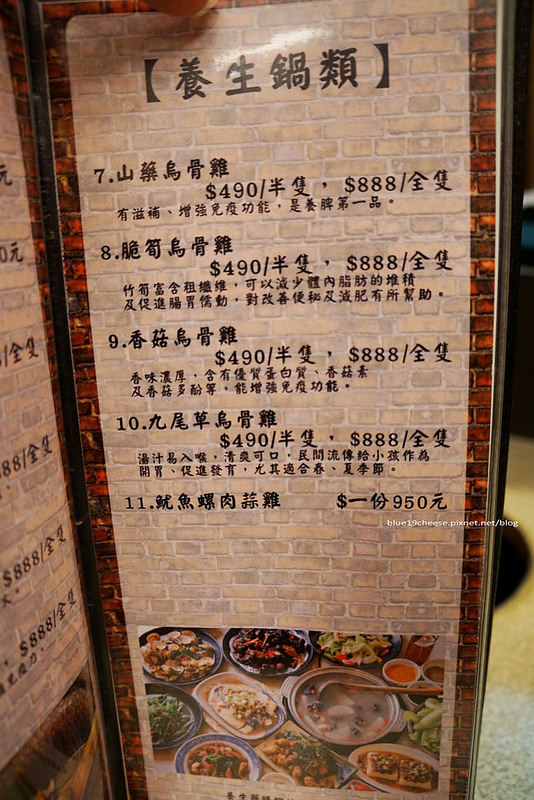 【養生鍋類】
7.山藥烏骨雞
$490/半隻, $888/全隻
有滋補、增強免疫功能,是養脾第一品。
8.脆筍烏骨雞
$490/半隻, $888/全隻
竹筍富含粗纖維,可以減少體內脂肪的堆積
及促進腸胃儒動,對改善便秘及減肥有所幫助。
9.香菇烏骨雞
$490/半隻, $888/全隻
香味濃厚,含有優質蛋白質、香菇素
及香菇多酚等,能增強免疫功能。
10.九尾草烏骨雞
$490/半隻, $888/全隻
湯汁易入喉,清爽可口,民間流傳給小孩作為
開胃、促進發育,尤其適合春、夏季節。
11.魷魚螺肉蒜雞 $一份950元
blue19cheese.pixnet.net/blog
元
0元
/全隻
/全隻
888/全隻
$888/全隻
$888/全隻